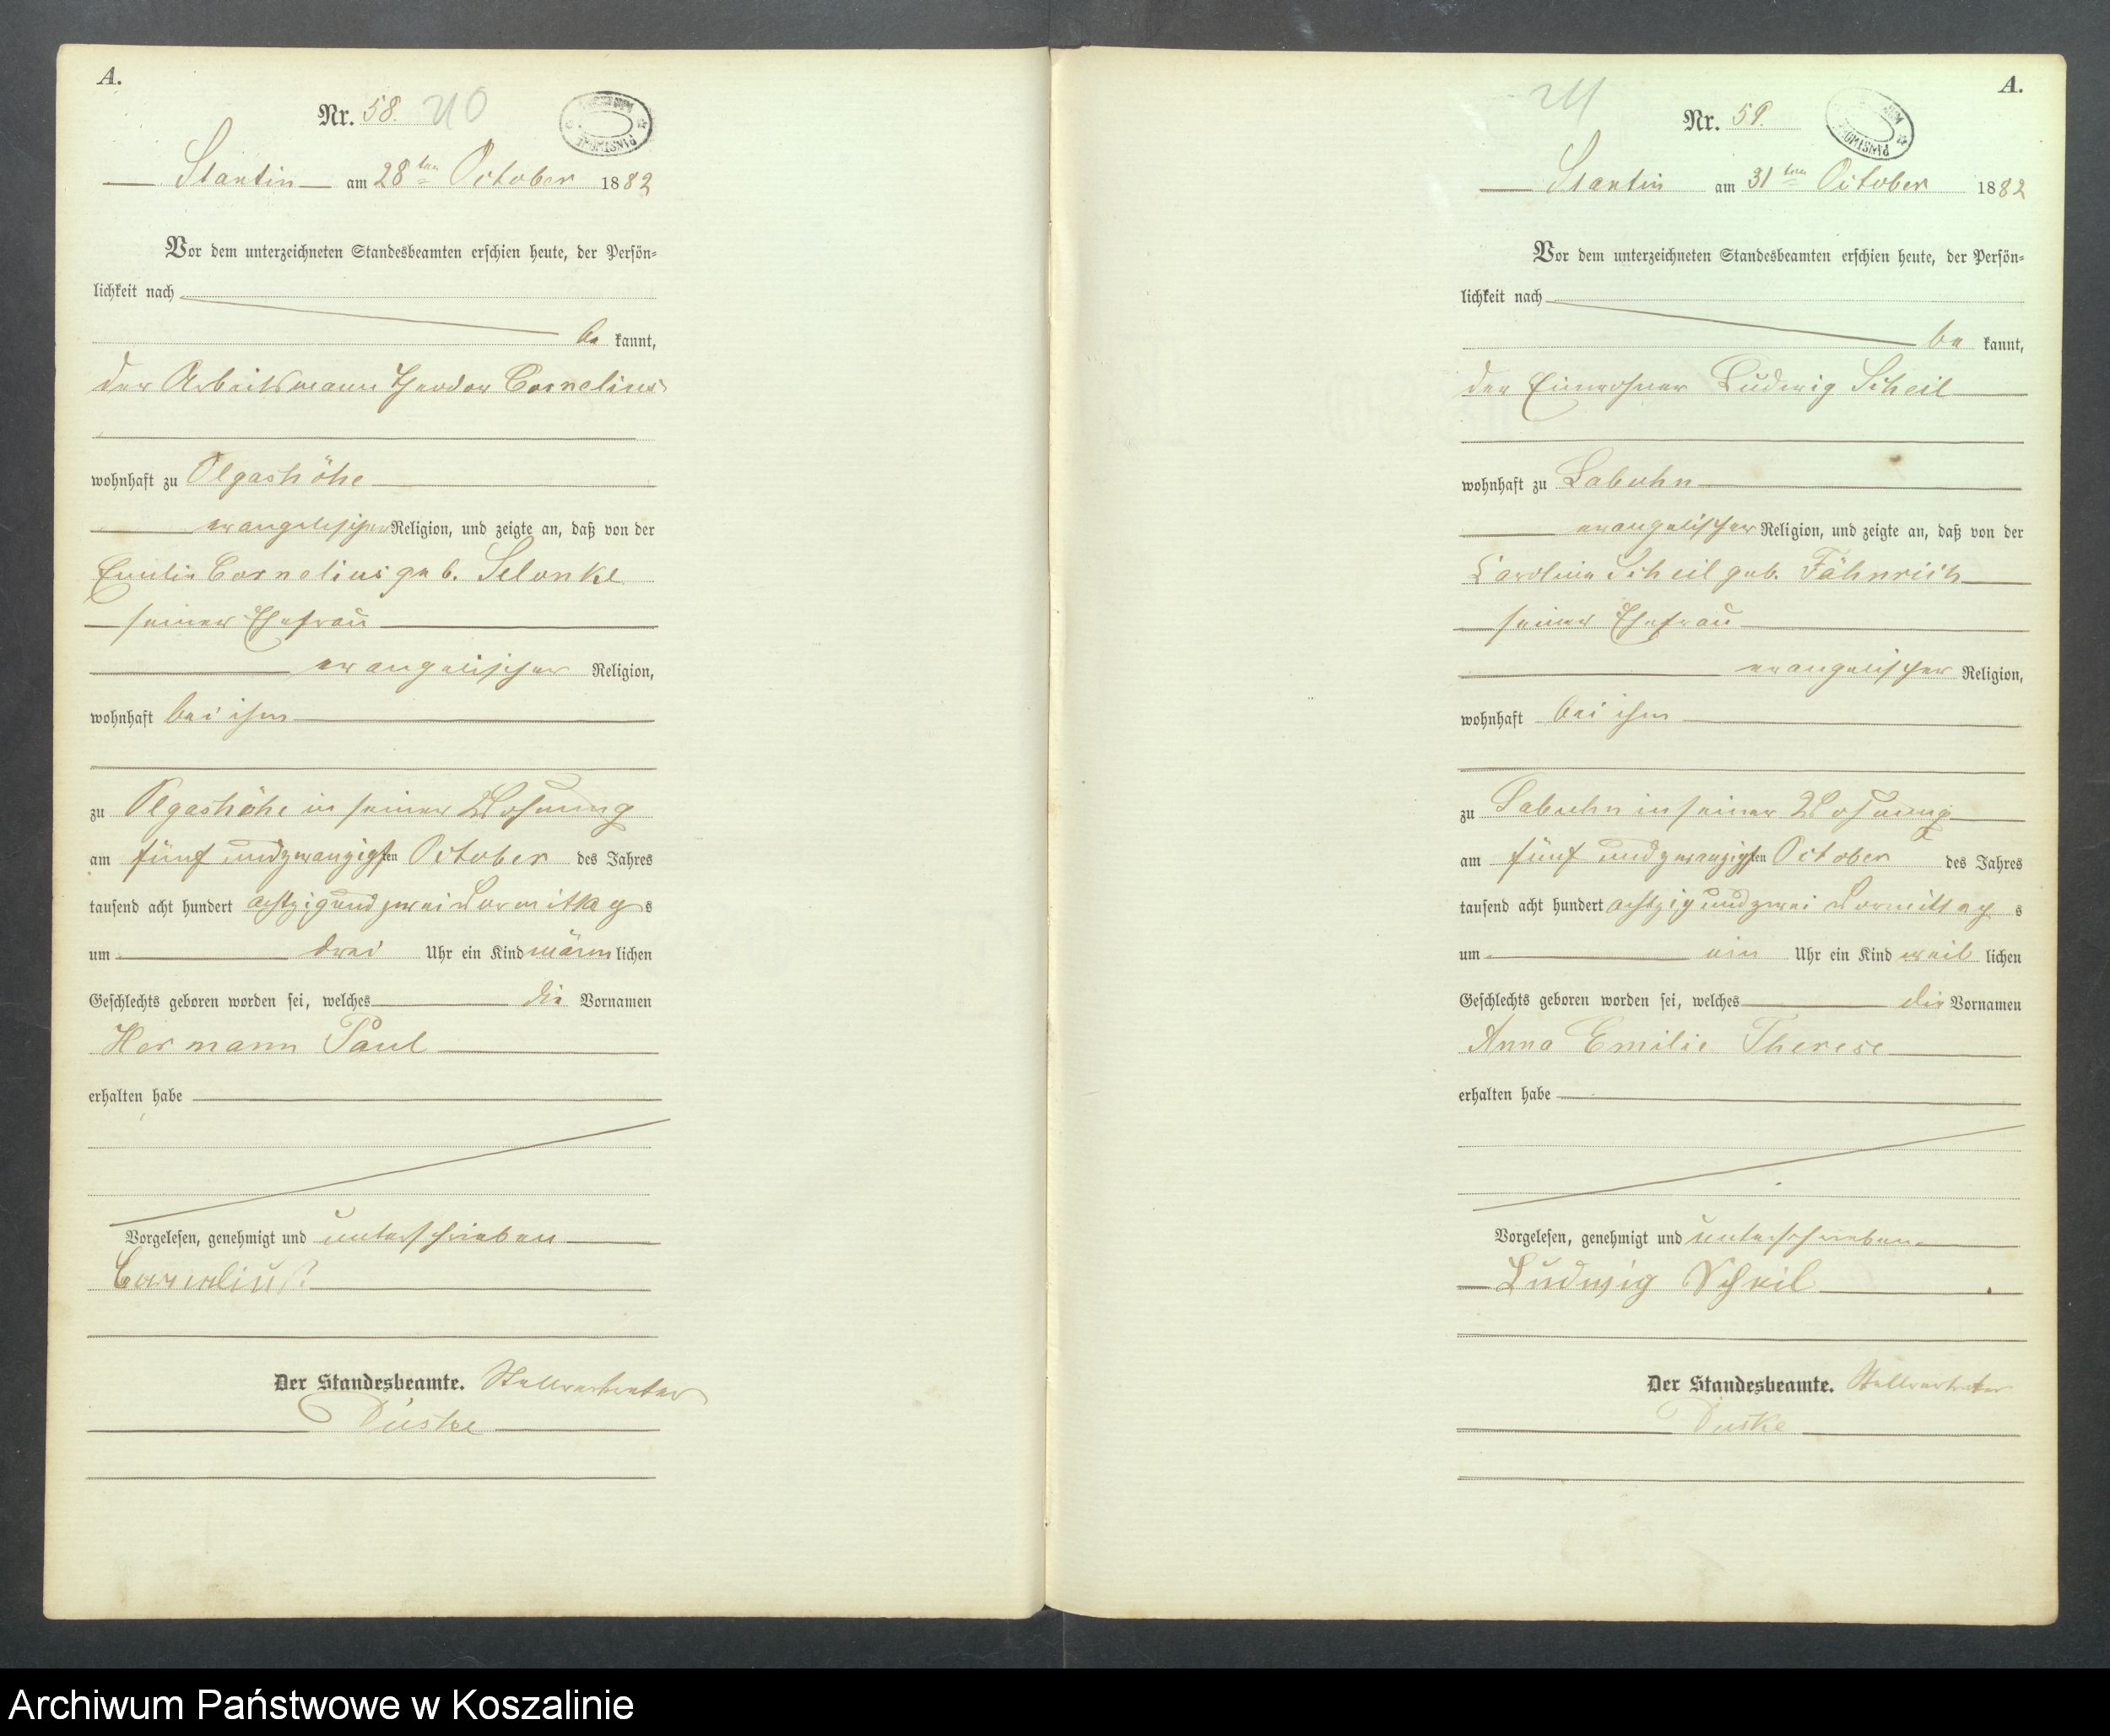 A.
Nr. 58.
Stantin am 28ten October 1882
Vor dem unterzeichneten Standesbeamten erschien heute, der Persön=
lichkeit nach
be kannt,
der Arbeitsmann Theodor Cornelius
wohnhaft zu Olgashöhe
evangelischer Religion, und zeigte an, daß von der
Emilie Cornelius geb. Selonke
seiner Ehefrau
evangelischer Religion,
wohnhaft bei ihm
zu Olgashöhe in seiner Wohnung
am fünf und zwanzigsten October des Jahres
tausend acht hundert achtzig und zwei Vormittags
um drei Uhr ein Kind männlichen
Geschlechts geboren worden sei, welches die Vornamen
Hermann Paul
erhalten habe
Vorgelesen, genehmigt und unterschrieben
Cornelius
Der Standesbeamte. Stellvertreter
A.
Nr. 59.
Stantin am 31ten October 1882
Vor dem unterzeichneten Standesbeamten erschien heute, der Persön=
lichkeit nach
be kannt,
der Einwohner Ludwig Scheil
wohnhaft zu Labuhn
evangelischer Religion, und zeigte an, daß von der
Caroline Scheil geb. Fähnrich
seiner Ehefrau
evangelischer Religion,
wohnhaft bei ihm
zu Labuhn in seiner Wohnung
am fünf und zwanzigsten October des Jahres
tausend acht hundert achtzig und zwei Vormittags
um ein Uhr ein Kind weiblichen
Geschlechts geboren worden sei, welches die Vornamen
Anna Emilie Therese
erhalten habe
Vorgelesen, genehmigt und unterschrieben.
Ludwig Scheil
Der Standesbeamte. Stellvertreter
Archiwum Państwowe w Koszalinie